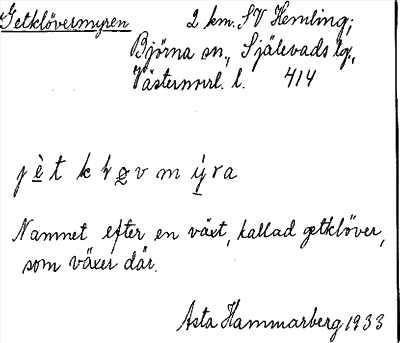 Getklövermyren 2 km. SV Hemling;
Björna sn., Själevads tg.,
Västernorrl. l. 414
j è t k l ø v m ý ra
Namnet efter en växt, kallad getklöver,
som växer där.
Asta Hammarberg 1933